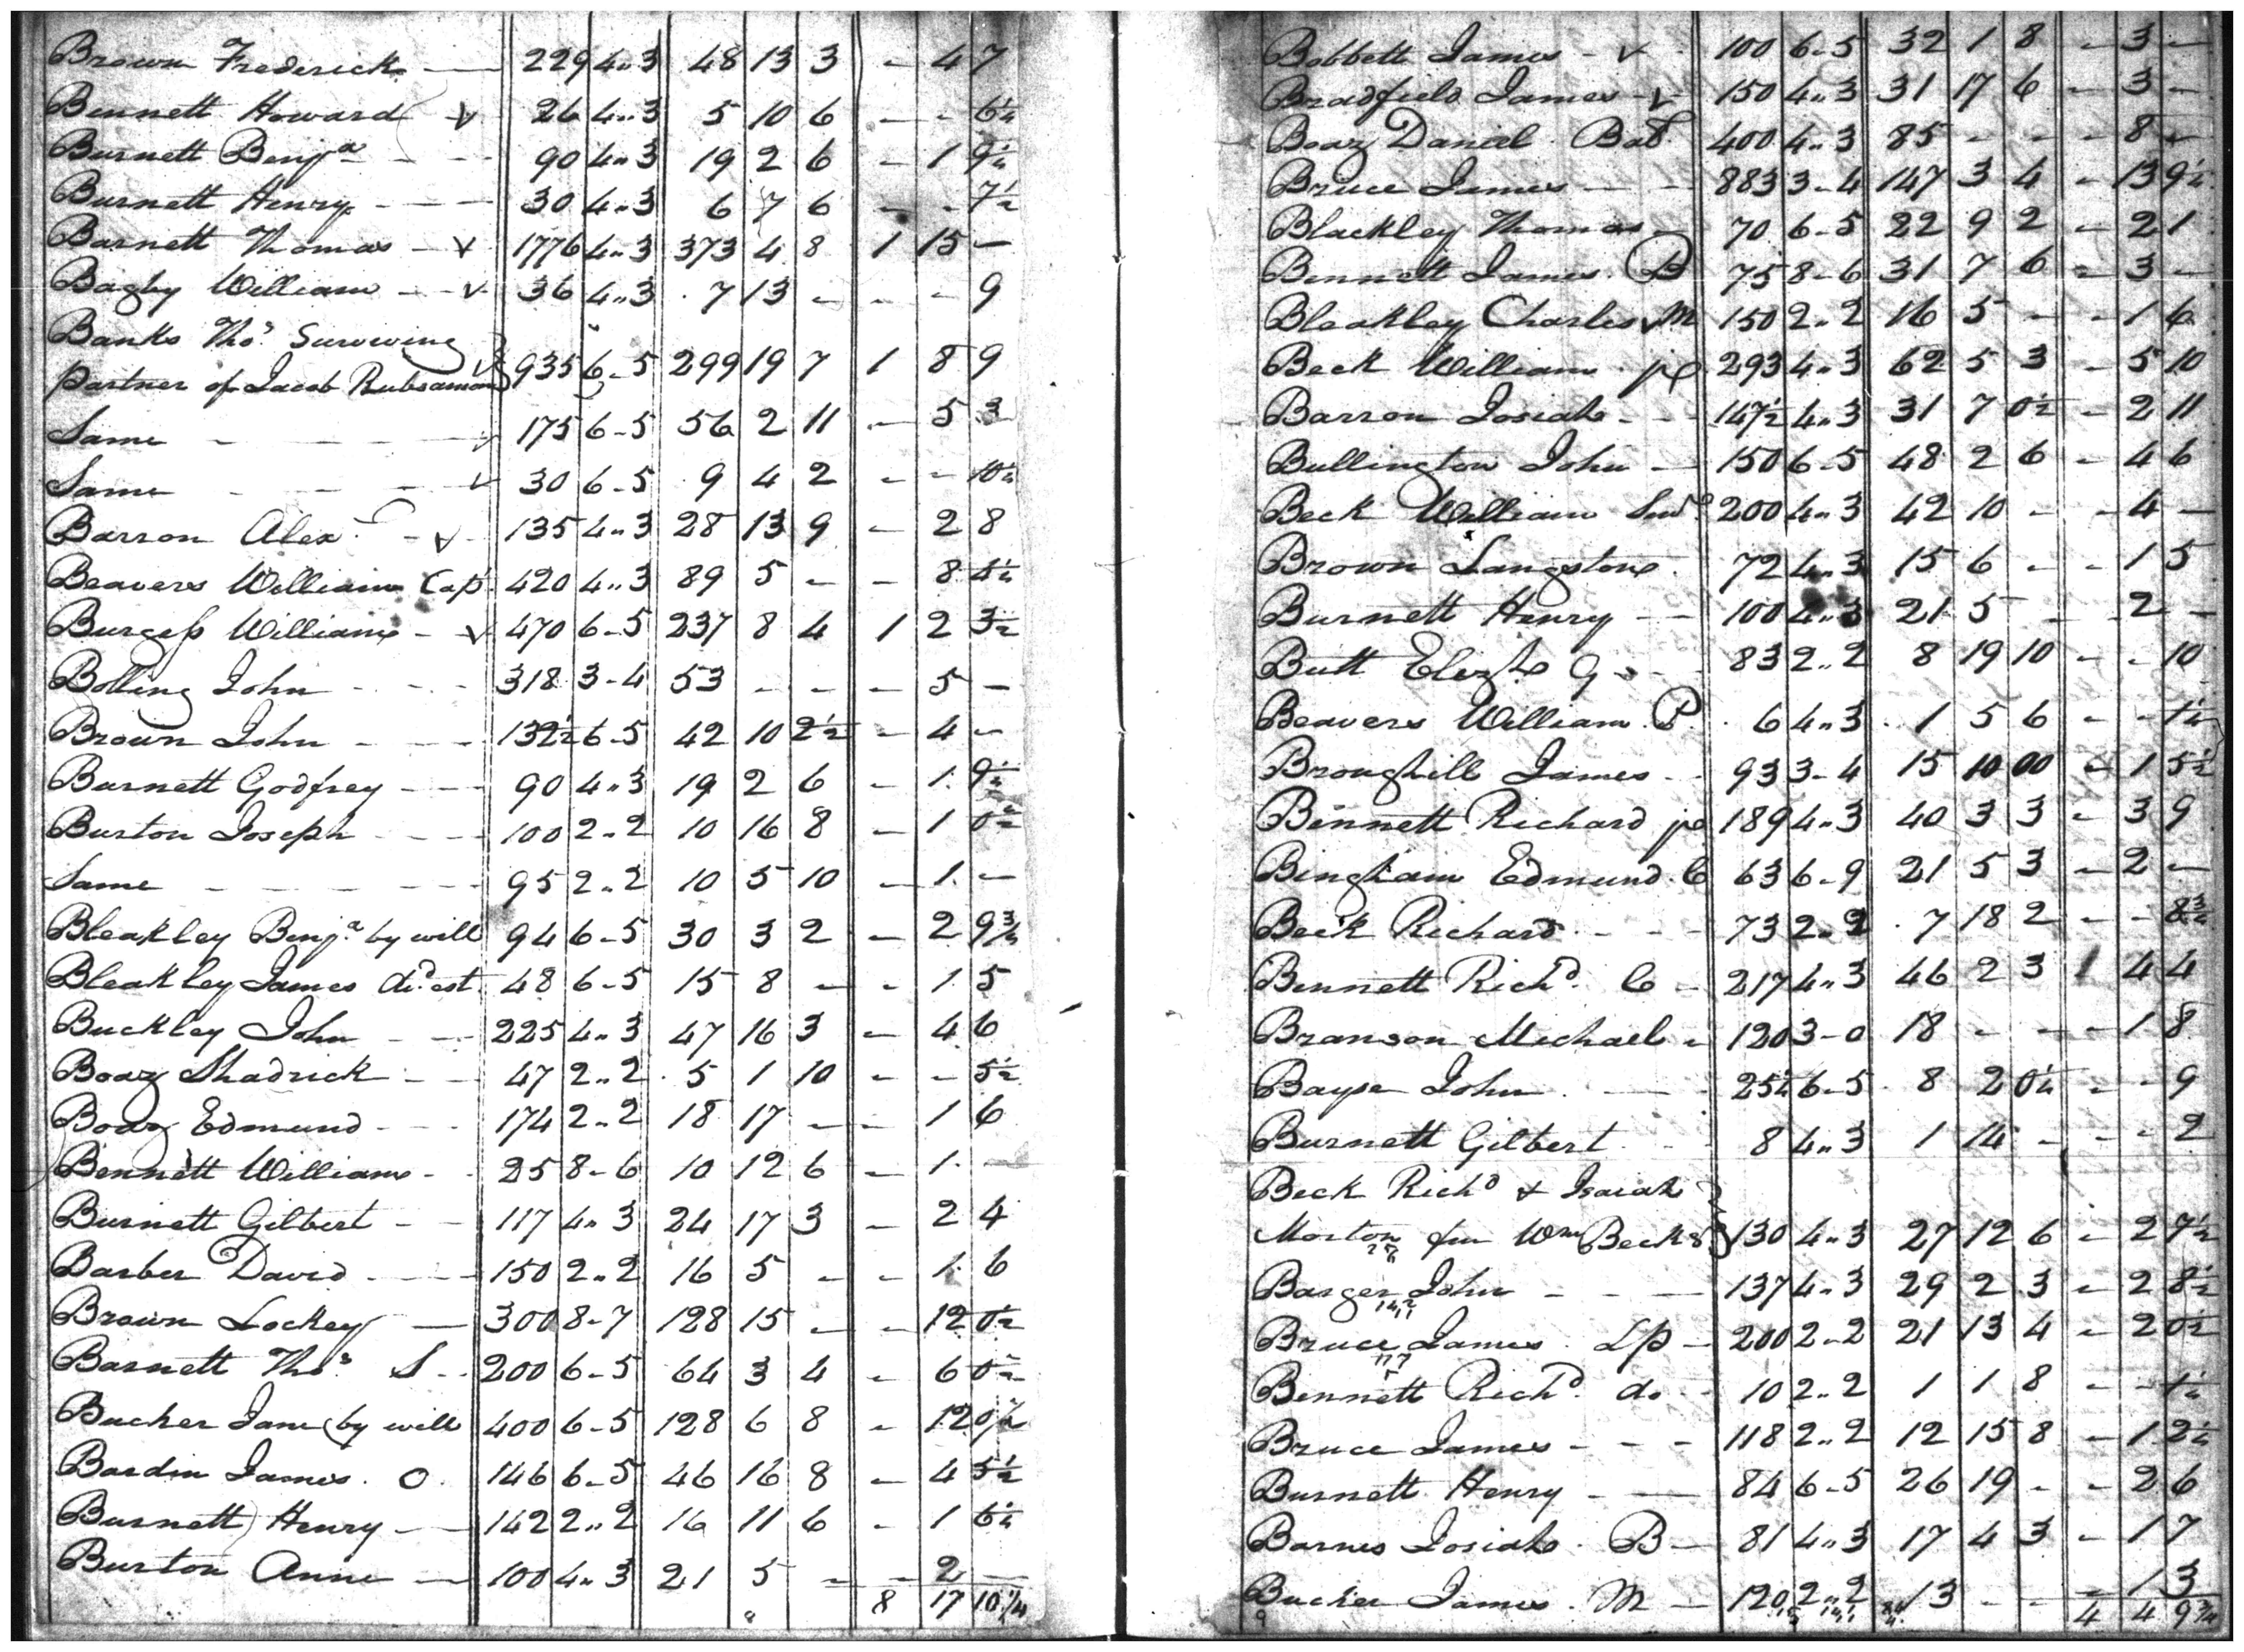 Brown Frederick — 229 4"3 48 13 3 - 4 7
Bennett Howard v 26 4"3 5 10 6 - - 6¼
Burnett Benjª - - - 90 4"3 19 2 6 - 1 9¼
Burnett Henry - - - 30 4"3 6 7 6 - - 7½
Barnett Thomas - v 1776 4"3 373 4 8 1 15 -
Bagby William - - v 36 4"3 7 13 - - - 9
Banks Thoˢ Surviving
partner of Jacob Rubsaman 935 6-5 299 19 7 1 8 9
Same - - - - 175 6-5 56 2 11 - 5 3
Same - - - v 30 6-5 9 4 2 - - 10¼
Barron Alexʳ - v 135 4"3 28 13 9 - 2 8
Beavers William Capᵗ 420 4"3 89 5 - - 8 4¼
Burgess William - v 470 6-5 237 8 4 1 2 3½
Bolling John - - - 318 3-4 53 - - - 5 -
Brown John - - - 132½ 6-5 42 10 2½ - 4 -
Burnett Godfrey - - 90 4"3 19 2 6 - 1 9¼
Burton Joseph - - 100 2"2 10 16 8 - 1 0½
Same - - - - - 95 2"2 10 5 10 - 1 -
Bleakley Benjª by will 94 6-5 30 3 2 - 2 9¾
Bleakley James dᵒ est 48 6-5 15 8 - - 1 5
Buckley John - - 225 4"3 47 16 3 - 4 6
Boaz Shadrick - - 47 2"2 5 1 10 - - 5½
Boaz Edmund - - 174 2"2 18 17 - - 1 6
Bennett William - - 25 8-6 10 12 6 - 1 -
Burnett Gilbert - - 117 4"3 24 17 3 - 2 4
Barber David - - 150 2"2 16 5 - - 1 6
Brown Lockey — 300 8-7 128 15 - - 12 0½
Barnett Thoˢ S - - 200 6-5 64 3 4 - 6 0½
Bucker Jane by will 400 6-5 128 6 8 - 12 0½
Bardin James O 146 6-5 46 16 8 - 4 5½
Burnett Henry - - 142 2"2 16 11 6 - 1 6¼
Burton Anne — 100 4"3 21 5 - - 2 -
8 17 10¼
Bobbett James - v 100 6-5 32 1 8 - 3 -
Bradfield James - v 150 4"3 31 17 6 - 3 -
Boaz Daniel Bat 400 4"3 85 - - - 8 -
Bruce James - - 883 3-4 147 3 4 - 13 9¼
Blackley Thomas - 70 6-5 22 9 2 - 2 1
Bennett James B 75 8-6 31 7 6 - 3 -
Bleakley Charles M 150 2"2 16 5 - - 1 6
Beck William jr 293 4"3 62 5 3 - 5 10
Barron Josiah - - 147½ 4"3 31 7 0½ - 2 11
Bullington John - 150 6-5 48 2 6 - 4 6
Beck William Snʳ 200 4"3 42 10 - - 4 -
Brown Langstone 72 4"3 15 6 - - 1 5
Burnett Henry - - 100 4"3 21 5 - - 2 -
Butt Elezh G - - 83 2"2 8 19 10 - - 10
Beavers William P 6 4"3 1 5 6 - - 1¼
Broughill James - 93 3-4 15 10 00 - 1 5½
Bennett Richard jr 189 4"3 40 3 3 - 3 9
Bingham Edmund C 63 6-9 21 5 3 - 2 -
Beck Richard - - - 73 2"2 7 18 2 - - 8¾
Bennett Richᵈ C - 217 4"3 46 2 3 1 4 4
Branson Michael - 120 3-0 18 - - - 1 8
Bayse John - - 25¼ 6-5 8 2 0¼ - - 9
Burnett Gilbert - - 8 4"3 1 14 - - - 2
Beck Richᵈ & Isaiah
Morton fm Wm Beck s 130 4"3 27 12 6 - 2 7½
Barger John - - - 137 4"3 29 2 3 - 2 8½
Bruce James Lp - 200 2"2 21 13 4 - 2 0½
Bennett Richᵈ do - 10 2"2 1 1 8 - - 1¼
Bruce James - - - 118 2"2 12 15 8 - 1 2¼
Burnett Henry - - 84 6-5 26 19 - - 2 6
Barnes Josiah B - 81 4"3 17 4 3 - 1 7
Bucker James M - 120 2"2 13 - - - 1 3
9 4 4 9¾